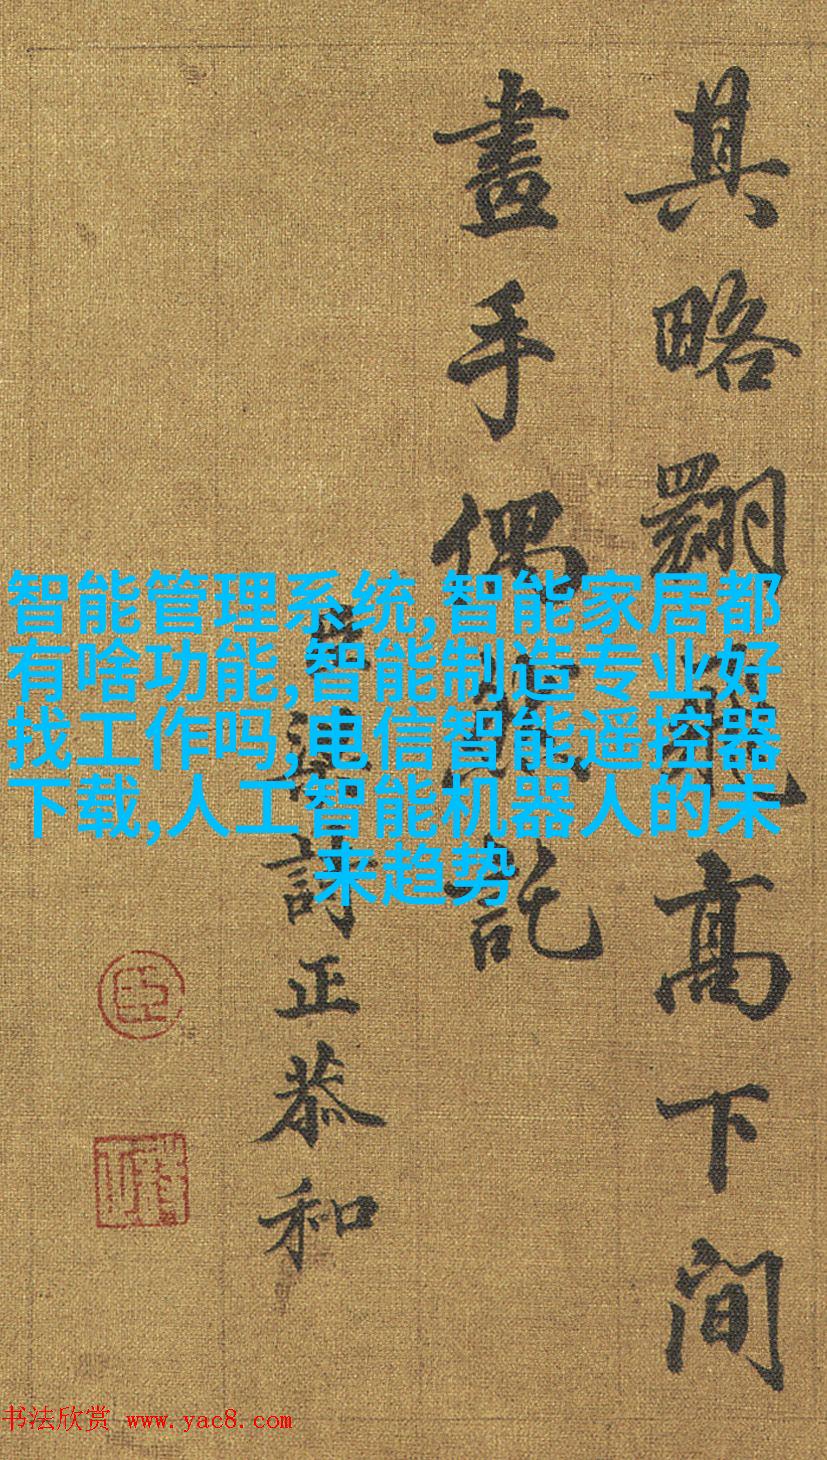 其略翾高下間
畫手偶然託
詩正恭和
臣
智能管理系统,智能家居都
有啥功能,智能制造专业好
找工作吗,电信智能遥控器
下载,人工智能机器人的未
来趋势
书法欣赏 www.yac8.com